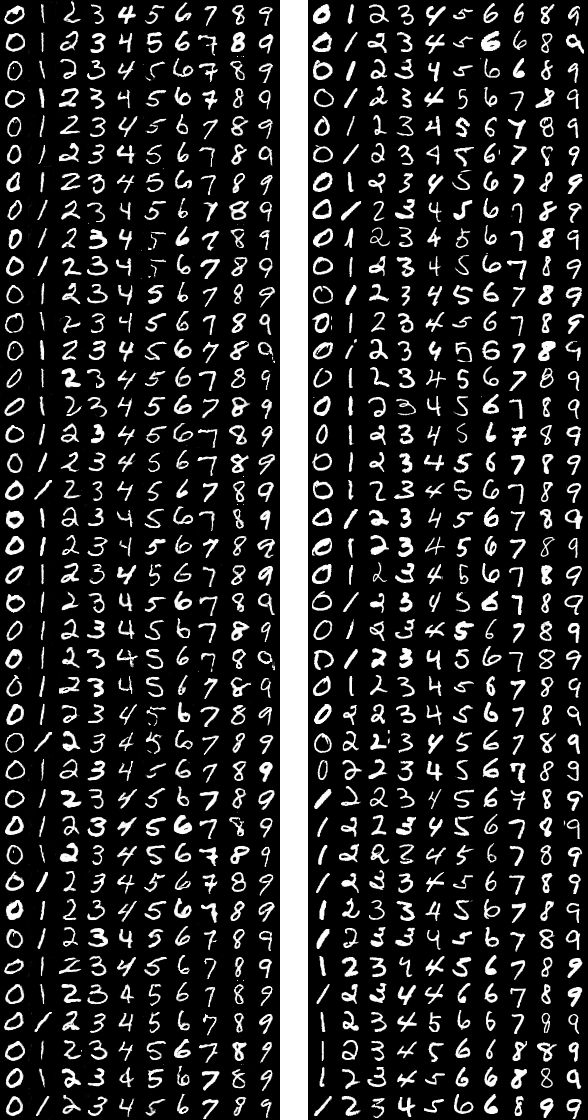 0 1 2 3 4 5 6 7 8 9
0 1 2 3 4 5 6 7 8 9
0 1 2 3 4 5 6 7 8 9
0 1 2 3 4 5 6 7 8 9
0 1 2 3 4 5 6 7 8 9
0 1 2 3 4 5 6 7 8 9
0 1 2 3 4 5 6 7 8 9
0 1 2 3 4 5 6 7 8 9
0 1 2 3 4 5 6 7 8 9
0 1 2 3 4 5 6 7 8 9
0 1 2 3 4 5 6 7 8 9
0 1 2 3 4 5 6 7 8 9
0 1 2 3 4 5 6 7 8 9
0 1 2 3 4 5 6 7 8 9
0 1 2 3 4 5 6 7 8 9
0 1 2 3 4 5 6 7 8 9
0 1 2 3 4 5 6 7 8 9
0 1 2 3 4 5 6 7 8 9
0 1 2 3 4 5 6 7 8 9
0 1 2 3 4 5 6 7 8 9
0 1 2 3 4 5 6 7 8 9
0 1 2 3 4 5 6 7 8 9
0 1 2 3 4 5 6 7 8 9
0 1 2 3 4 5 6 7 8 9
0 1 2 3 4 5 6 7 8 9
0 1 2 3 4 5 6 7 8 9
0 1 2 3 4 5 6 7 8 9
0 1 2 3 4 5 6 7 8 9
0 1 2 3 4 5 6 7 8 9
0 1 2 3 4 5 6 7 8 9
0 1 2 3 4 5 6 7 8 9
0 1 2 3 4 5 6 7 8 9
0 1 2 3 4 5 6 7 8 9
0 1 2 3 4 5 6 7 8 9
0 1 2 3 4 5 6 7 8 9
0 1 2 3 4 5 6 7 8 9
0 1 2 3 4 5 6 7 8 9
0 1 2 3 4 5 6 7 8 9
0 1 2 3 4 5 6 7 8 9
0 1 2 3 4 5 6 7 8 9
0 1 2 3 4 5 6 6 8 9
0 1 2 3 4 5 6 6 8 9
0 1 2 3 4 5 6 6 8 9
0 1 2 3 4 5 6 7 8 9
0 1 2 3 4 5 6 7 8 9
0 1 2 3 4 5 6 7 8 9
0 1 2 3 4 5 6 7 8 9
0 1 2 3 4 5 6 7 8 9
0 1 2 3 4 5 6 7 8 9
0 1 2 3 4 5 6 7 8 9
0 1 2 3 4 5 6 7 8 9
0 1 2 3 4 5 6 7 8 9
0 1 2 3 4 5 6 7 8 9
0 1 2 3 4 5 6 7 8 9
0 1 2 3 4 5 6 7 8 9
0 1 2 3 4 5 6 7 8 9
0 1 2 3 4 5 6 7 8 9
0 1 2 3 4 5 6 7 8 9
0 1 2 3 4 5 6 7 8 9
0 1 2 3 4 5 6 7 8 9
0 1 2 3 4 5 6 7 8 9
0 1 2 3 4 5 6 7 8 9
0 1 2 3 4 5 6 7 8 9
0 1 2 3 4 5 6 7 8 9
0 1 2 3 4 5 6 7 8 9
0 2 2 3 4 5 6 7 8 9
0 2 2 3 4 5 6 7 8 9
0 2 2 3 4 5 6 7 8 9
1 2 2 3 4 5 6 7 8 9
1 2 2 3 4 5 6 7 8 9
1 2 2 3 4 5 6 7 8 9
1 2 3 3 4 5 6 7 8 9
1 2 3 3 4 5 6 7 8 9
1 2 3 3 4 5 6 7 8 9
1 2 3 4 4 5 6 7 8 9
1 2 3 4 4 6 6 7 8 9
1 2 3 4 5 6 6 7 8 9
1 2 3 4 5 6 6 8 8 9
1 2 3 4 5 6 6 8 8 9
1 2 3 4 5 6 6 8 9 9